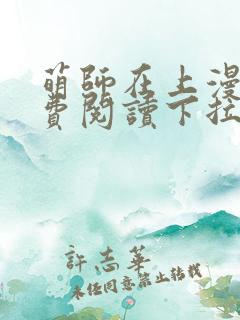 萌師在上漫
費閱讀下拉
許志華
未經同意禁止轉載